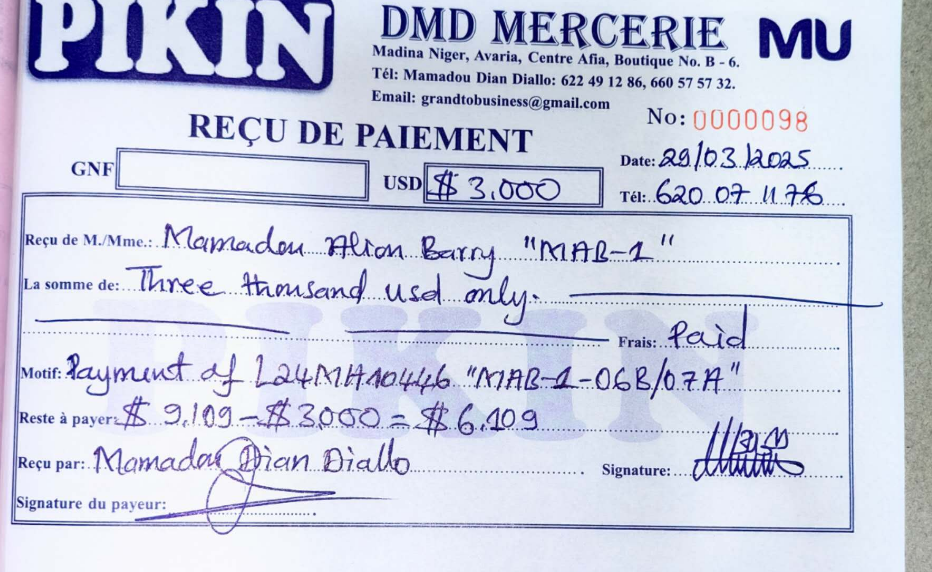 PIKIN
DMD MERCERIE
MU
Madina Niger, Avaria, Centre Afia, Boutique No. B - 6.
Tél: Mamadou Dian Diallo: 622 49 12 86, 660 57 57 32.
Email: grandtobusiness@gmail.com
No: 0000098
REÇU DE PAIEMENT
Date: 29/03/2025
GNF
USD $ 3,000
Tél: 620 07 11 76
Reçu de M./Mme.: Mamadou Alion Barry "MAB-1"
La somme de: Three thousand usd only.
Frais: Paid
Motif: Payment of L24MH10446 "MAB-1-06B/07A"
Reste à payer: $ 9,109 - $ 3000 = $ 6,109
Reçu par: Mamadou Dian Diallo
Signature:
Signature du payeur:
PIKIN